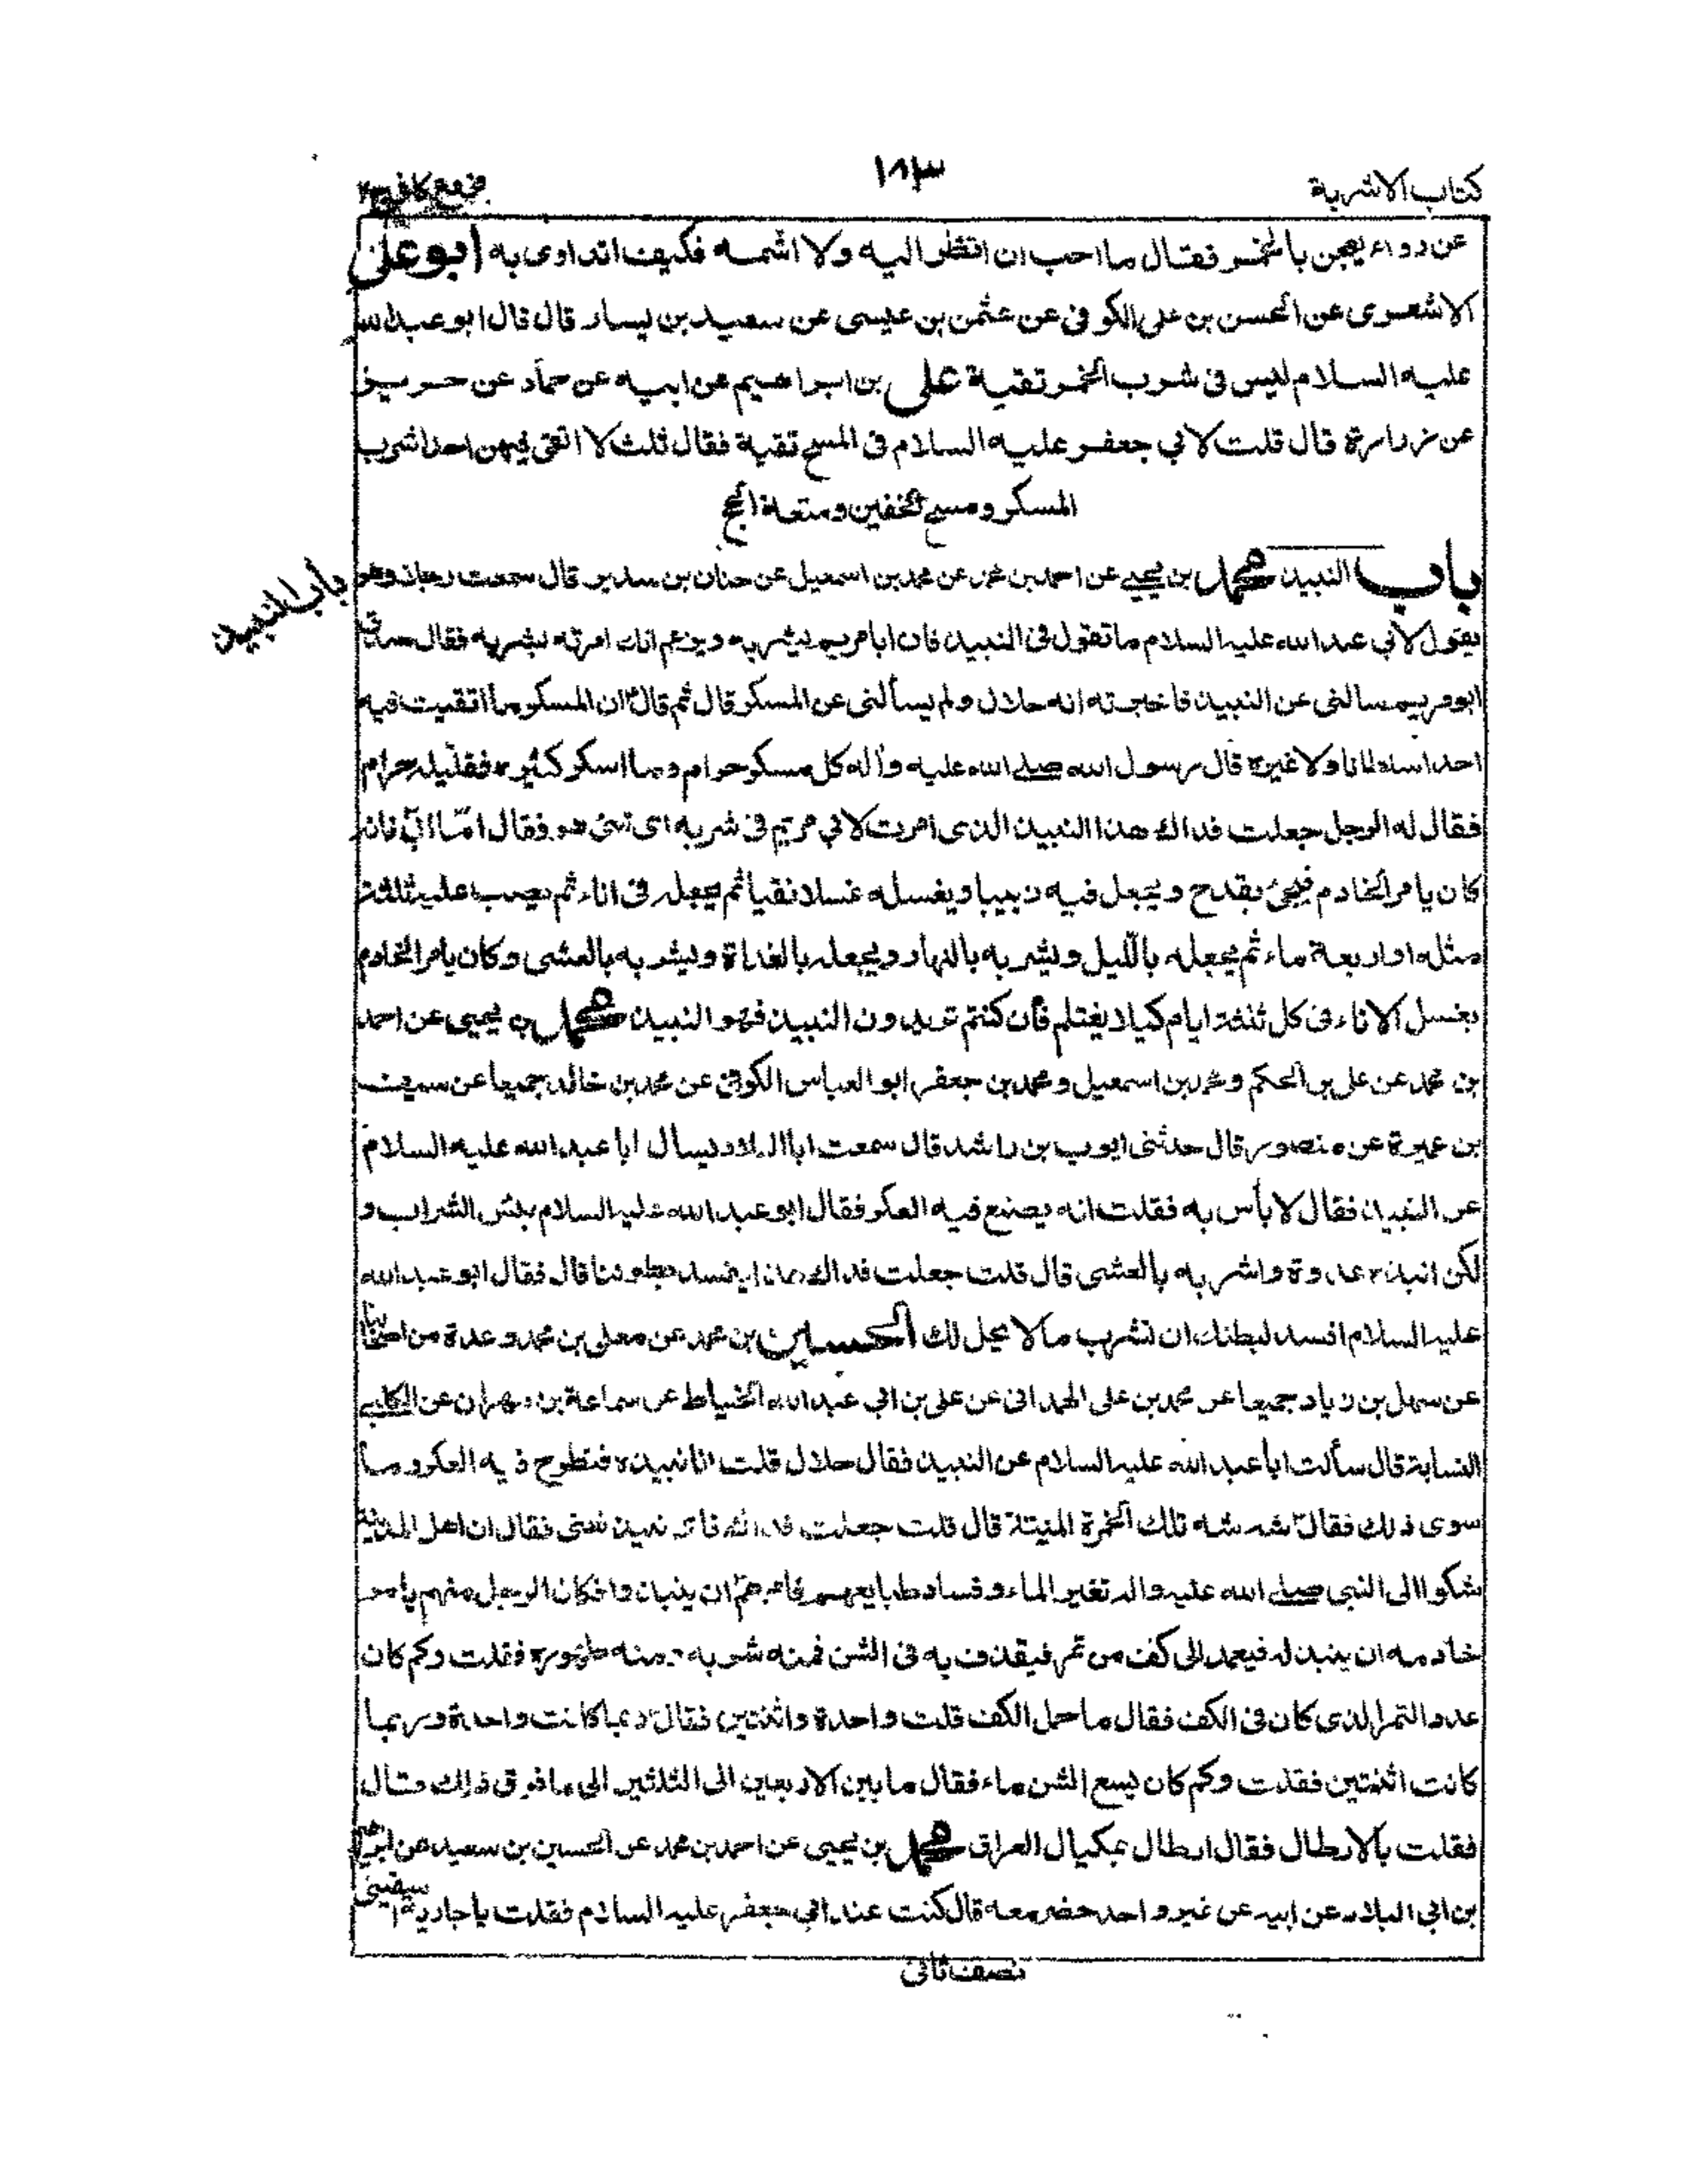 كتاب الاشربة
١٨٣
فروع كافي ج٢
عن دواء يعجن بالخمر فقال ما احب ان انظر اليه ولا اشمه فكيف اتداوى به ابو على
الاشعرى عن الحسن بن على الكوفى عن عثمن بن عيسى عن سعيد بن يسار قال قال ابو عبد الله
عليه السلام ليس فى شرب الخمر تقية على بن ابراهيم عن ابيه عن حماد عن حريز
عن زرارة قال قلت لابي جعفر عليه السلام فى المسح تقية فقال ثلث لا اتقى فيهن احدا شرب
المسكر ومسح الخفين ومتعة الحج
باب النبيذ محمد بن يحيى عن احمد بن محمد عن محمد بن اسمعيل عن حنان بن سدير قال سمعت رجلا وهو
باب النبيذ
يقول لابي عبد الله عليه السلام ما تقول فى النبيذ فان ابا مريم يشربه ويزعم انك امرته بشربه فقال صدق
ابو مريم سالنى عن النبيذ فاخبرته انه حلال ولم يسألنى عن المسكر قال ثم قال ان المسكر ما اتقيت فيه
احدا سلطانا ولا غيره قال رسول الله صلى الله عليه وآله كل مسكر حرام وما اسكر كثيره فقليله حرام
فقال له الرجل جعلت فداك هذا النبيذ الذى امرت لابي مريم فى شربه اى شئ هو فقال امّا ابي فانه
كان يامر الخادم فيجئ بقدح ويجعل فيه زبيبا ويغسله غسلا نقيا ثم يجعله فى اناء ثم يصب عليه ثلثة
مثله او اربعة ماء ثم يجعله بالليل ويشربه بالنهار ويجعله بالغداة ويشربه بالعشى وكان يامر الخادم
بغسل الاناء فى كل ثلثة ايام كيلا يغتلم فان كنتم تريدون النبيذ فهو النبيذ محمد بن يحيى عن احمد
بن محمد عن على بن الحكم ومحمد بن اسمعيل ومحمد بن جعفر ابو العباس الكوفى عن محمد بن خالد جميعا عن سيف
بن عميرة عن منصور قال حدثنى ايوب بن راشد قال سمعت ابا البلاد يسال ابا عبد الله عليه السلام
عن النبيذ فقال لا بأس به فقلت انه يصنع فيه العكر فقال ابو عبد الله عليه السلام بئس الشراب و
لكن انبذه غدوة واشربه بالعشى قال قلت جعلت فداك هذا يفسد بطوننا قال فقال ابو عبد الله
عليه السلام افسد لبطنك ان تشرب ما لا يحل لك الحسين بن محمد عن معلى بن محمد وعدة من اصحابنا
عن سهل بن زياد جميعا عن محمد بن على الهمدانى عن على بن ابي عبد الله الخياط عن سماعة بن مهران عن الكلبى
النسابة قال سألت ابا عبد الله عليه السلام عن النبيذ فقال حلال قلت انا ننبذه فنطرح فيه العكر وما
سوى ذلك فقال شه شه تلك الخمرة المنتنة قال قلت جعلت فداك فاى نبيذ تعنى فقال ان اهل المدينة
شكوا الى النبى صلى الله عليه واله تغير الماء وفساد طبايعهم فامرهم ان ينبذوا فكان الرجل منهم يامر
خادمه ان ينبذ له فيعمد الى كف من تمر فيقذف به فى الشن فمنه شربه ومنه طهوره فقلت وكم كان
عدد التمر الذى كان فى الكف فقال ما حمل الكف قلت واحدة واثنتين فقال ربما كانت واحدة وربما
كانت اثنتين فقلت وكم كان يسع الشن ماء فقال ما بين الاربعين الى الثلثين الى ما فوق ذلك قال
فقلت بالارطال فقال ارطال بمكيال العراق محمد بن يحيى عن احمد بن محمد عن الحسين بن سعيد عن ابرهيم
بن ابي البلاد عن ابيه عن غير واحد حضر معه قال كنت عند ابي جعفر عليه السلام فقلت يا جارية اسقينى
نصف ثانى